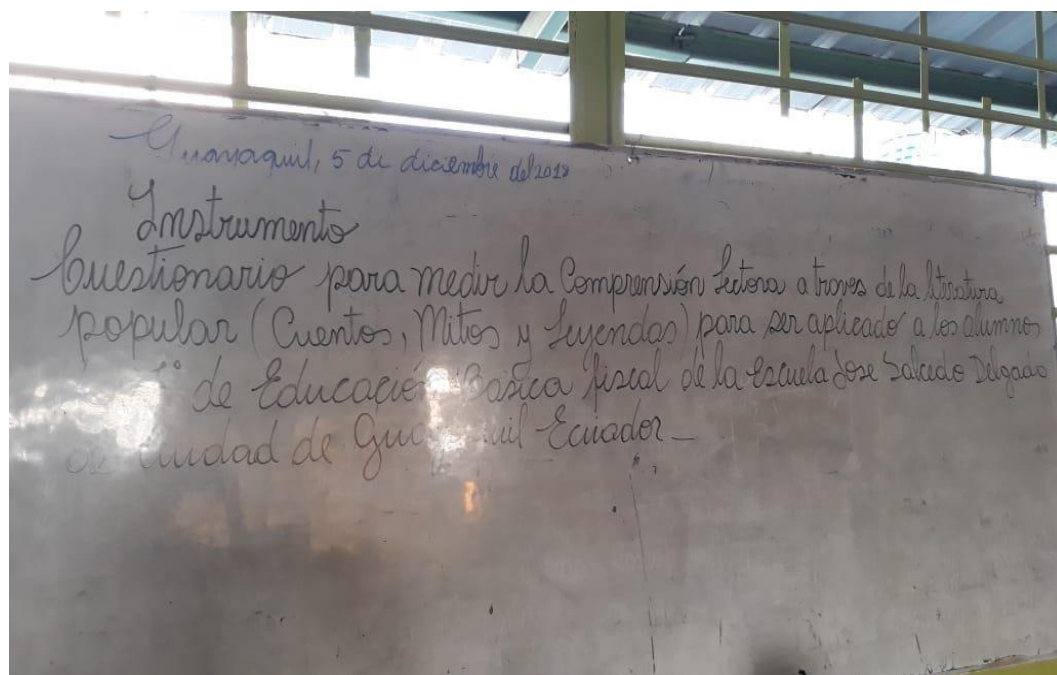 Guayaquil, 5 de diciembre del 2018
Instrumento
Cuestionario para medir la Comprensión Lectora a traves de la literatura
popular (Cuentos, Mitos y Leyendas) para ser aplicado a los alumnos
de Educación Basica fiscal de la escuela Jose Salcedo Delgado
Ciudad de Ecuador